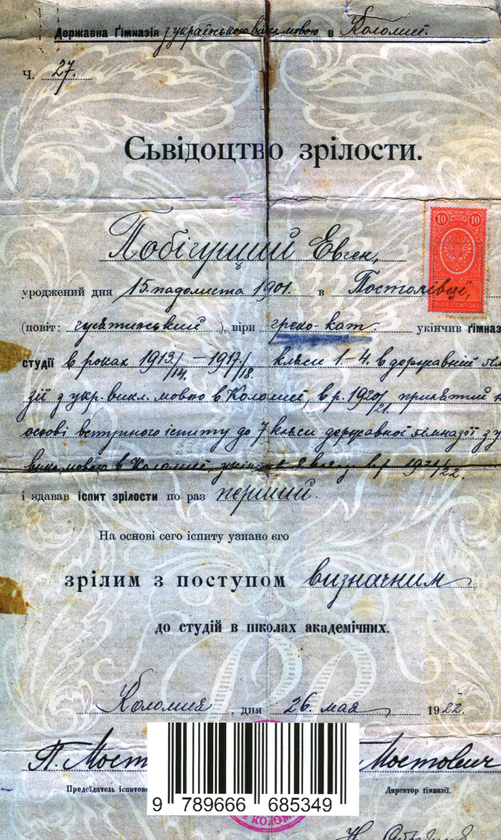 Державна Ґімназія з українською викл. мовою в Коломиї.
Ч. 27.
Сьвідоцтво зрілости.
10 10
Побігущий Евген,
уроджений дня 15. падолиста 1901. в Постолівці,
(повіт: гусятинський ), віри греко-кат. укінчив ґімназ
студії в роках 1913/14 – 1917/18 кляси 1-4. в державній ґімна
зії з укр. викл. мовою в Коломиї, в р. 1920/21. принятий на
основі вступного іспиту до 7 кляси державної ґімназії з у
викл. мовою в Коломиї, 8 клясу в р. 1921/22.
і здавав іспит зрілости по раз перший.
На основі сего іспиту узнано его
зрілим з поступом визначним
до студій в школах академічних.
Коломия , дня 26. мая 1922.
П. Мост Мостович
Предсїдатель іспитово Директор ґімназії.
9 789666 685349
КОЛОМ